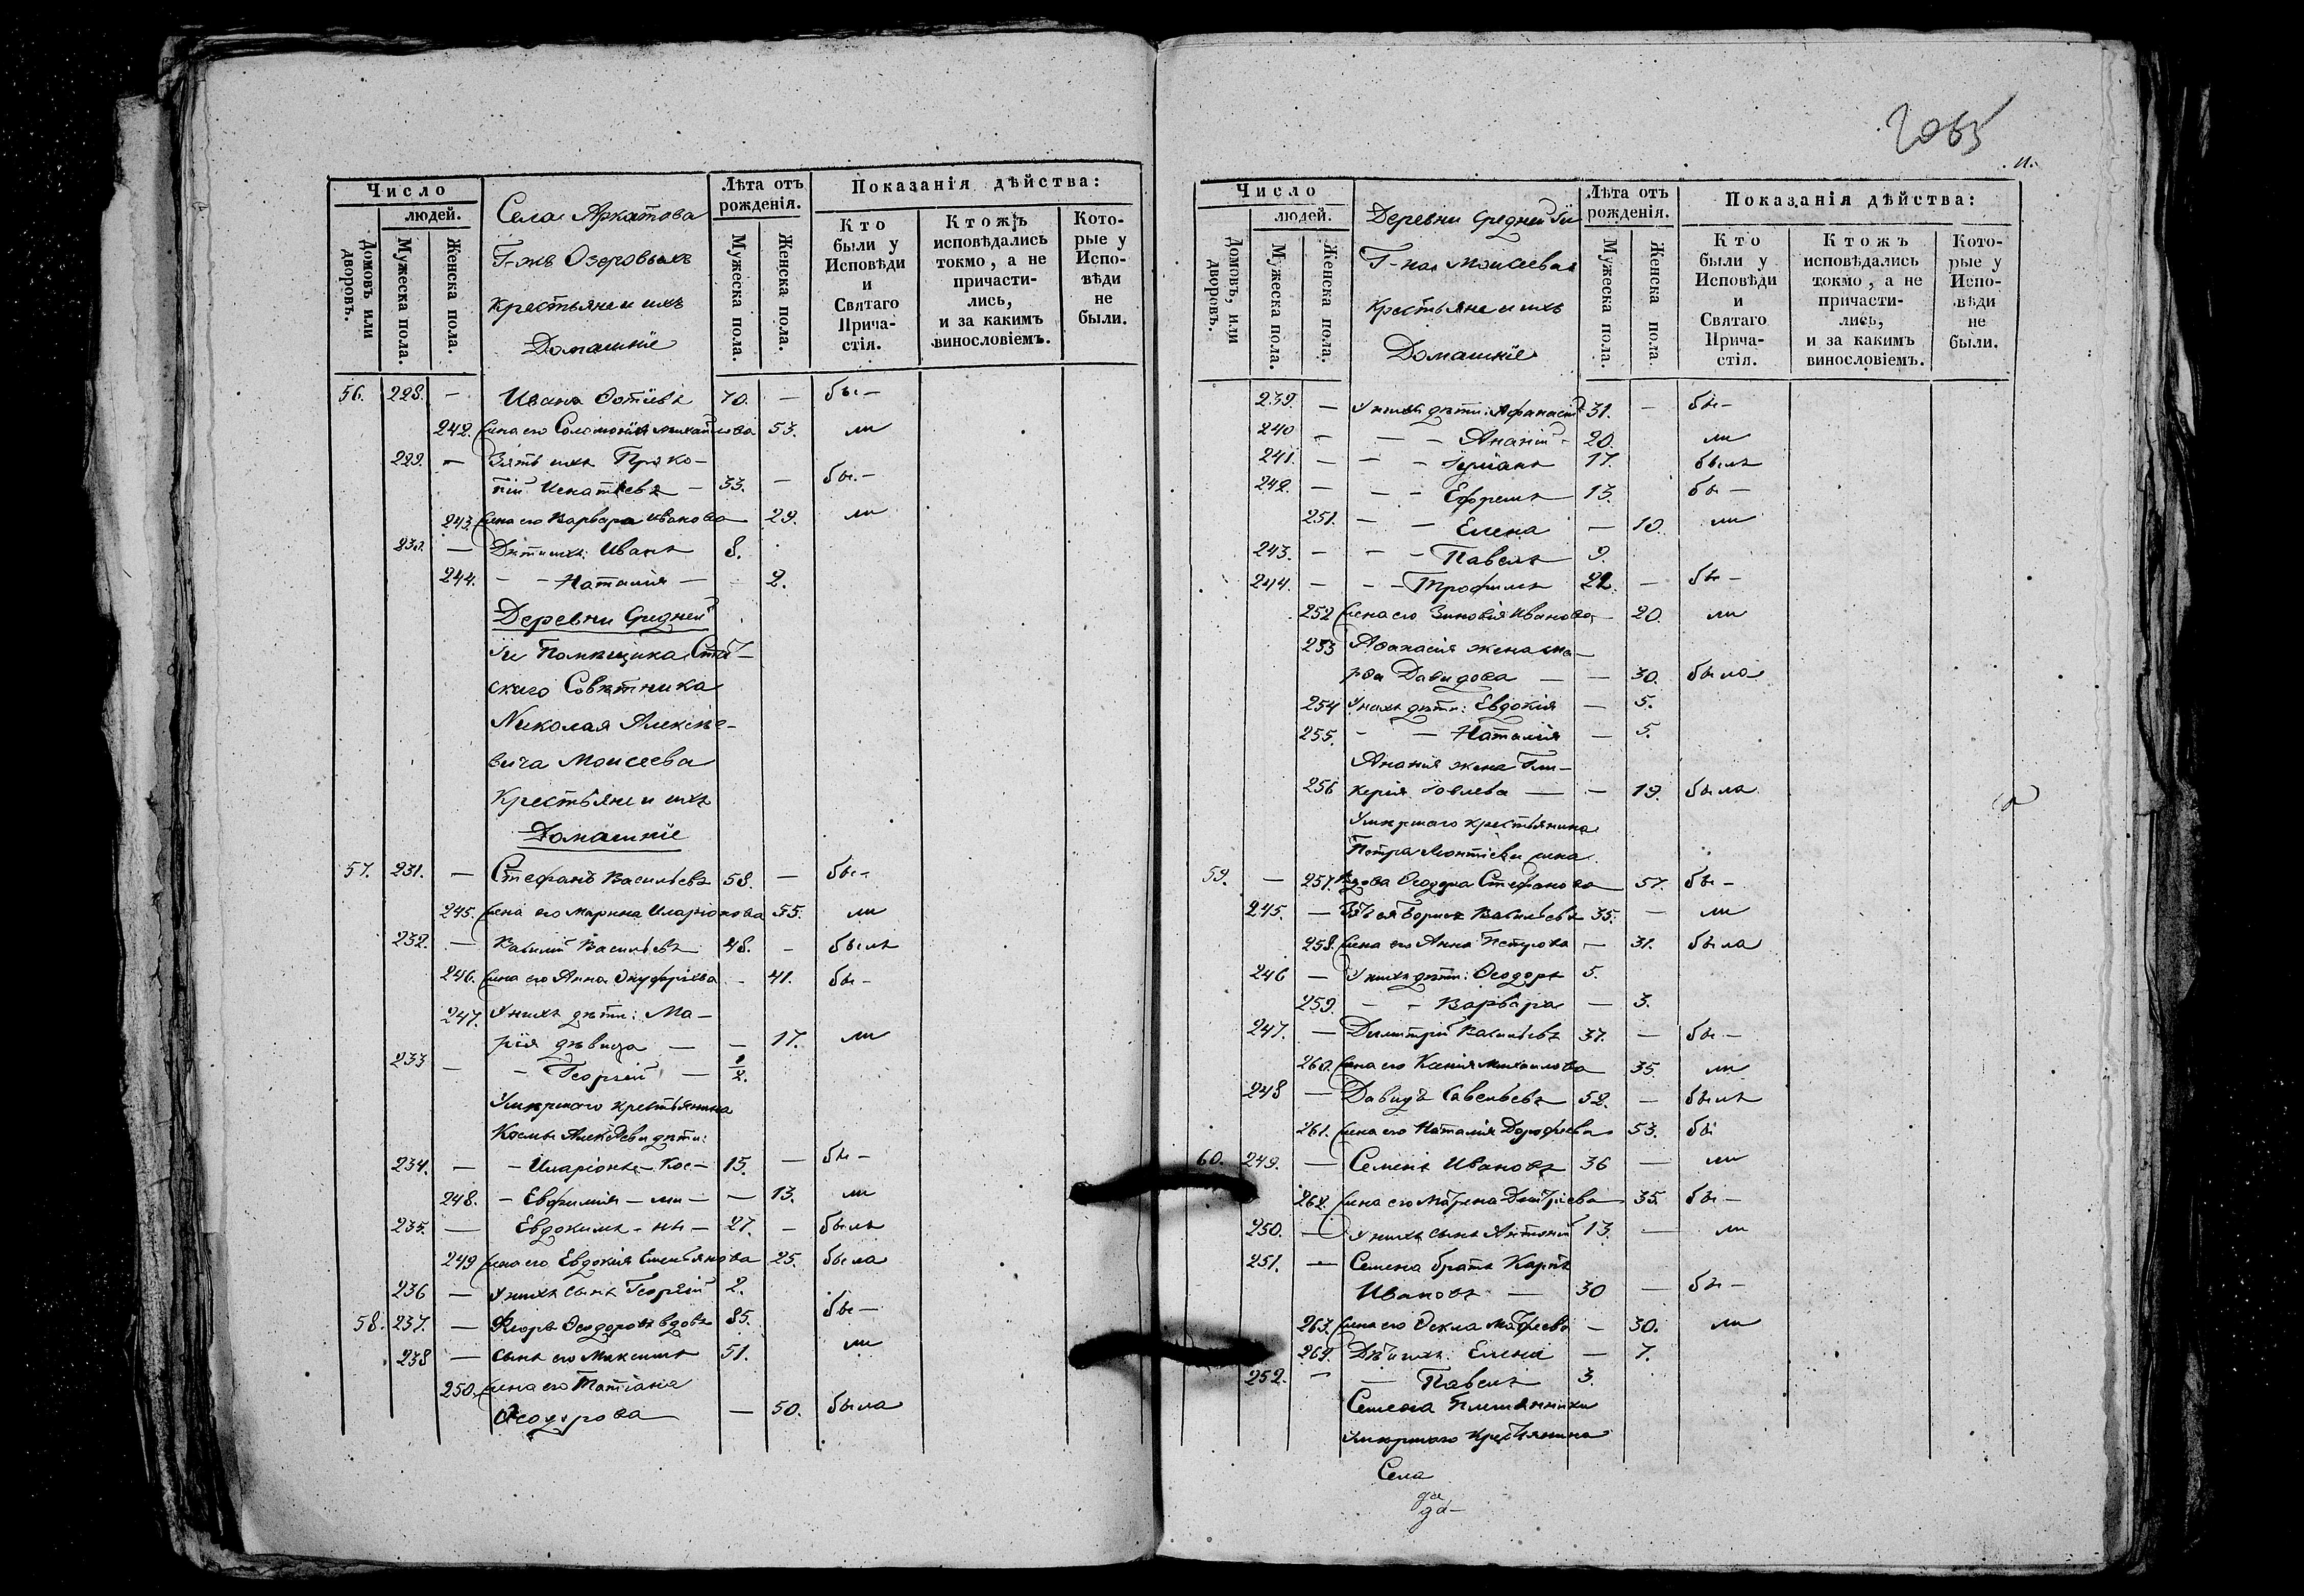 2065
Число
людей.
Домовъ или дворовъ.
Мужеска пола.
Женска пола.
Села Аркатова
Г-жъ Озеровыхъ
Крестьяне и ихъ
Домашніе
Лѣта отъ рожденія.
Мужеска пола.
Женска пола.
Показанія дѣйства:
Кто были у Исповѣди и Святаго Прича-стія.
Ктожъ исповѣдались токмо, а не причасти-лись, и за какимъ винословіемъ.
Кото-рые у Испо-вѣди не были.
56. 228. — Иванъ Фотіевъ 70. — бы —
242. жена его Соломонія Михайлова 53. ли
229. — Зять ихъ Проко-
пій Игнатьевъ — 33. — бы. —
243. жена его Варвара Иванова 29. ли
230. — Дѣти ихъ: Иванъ 8.
244. — — Наталія — — 2.
Деревни Средней
Помѣщика Стат-
скаго Совѣтника
Николая Алексѣе-
вича Моисеева
Крестьяне и ихъ
Домашніе
57. 231. — Стефанъ Васильевъ 58. — бы —
245. жена его Марина Иларіонова 55. ли
232. — Василій Васильевъ 48. — былъ
246. жена его Анна Онуфріева — 41. бы —
247. У нихъ дѣти: Ма-
рія дѣвица — — 17. ли
233 — — Георгій — 1/2.
Умершаго крестьянина
Космы дѣти:
234. — — Иларіонъ — Кос — 15. — бы —
248. — Евфимія — ми — — 13. ли
235. — Евдокимъ — ны — 27. — былъ
249 жена его Евдокія Емельянова 25. была
236 — У нихъ сынъ Георгій 2.
58. 237. — Ѳеодоровъ вдовъ 85. бы —
238 — Сынъ его Максимъ 51. ли
250. жена его Татіана
Ѳеодорова — 50. была
Число
людей.
Домовъ, или дворовъ.
Мужеска пола.
Женска пола.
Деревни Средней
Г-на Моисеева
Крестьяне и ихъ
Домашніе
Лѣта отъ рожденія.
Мужеска пола.
Женска пола
Показанія дѣйства:
Кто были у Исповѣди и Святаго Прича-стія.
Ктожъ исповѣдались токмо, а не причасти-лись, и за какимъ винословіемъ.
Кото-рые у Испо-вѣди не были.
239. — У нихъ дѣти: Афанасій 31. — бы —
240 — — — Ананій — 20. ли
241. — — — 17. былъ
242. — — — Ефремъ 13. бы —
251. — — Елена — 10. ли
243. — — — Павелъ 9.
244. — — — Трофимъ 22. — бы —
252 жена его Зиновія Иванова — 20. ли
253 Афанасія жена Ма-
Давидова — — 30. была
254 У нихъ дѣти: Евдокія — 5.
255. — — Наталія — 5.
Ананія жена Гли-
256 керія Іовлева — — 19. была
Умершаго крестьянина
Петра жена
59. — 257. вдова Ѳеодора Стефанова 57. бы —
245. — Зять ея Борисъ Васильевъ 35. — ли
258. жена его Анна Петрова — 31. была
246 — У нихъ дѣти: Ѳеодоръ 5.
259. — — Варвара — 3.
247. — Димитрій Васильевъ 37. — бы —
260. жена его Ксенія Михайлова 35. ли
248 — Давидъ Савельевъ 52. — былъ
261. жена его Наталія Дорофеева 53. бы
60. 249. — Семенъ Ивановъ 36 — ли
262. жена его Матрена Дмитріева 35. бы —
250. — У нихъ сынъ Антоній 13. — ли
251. — Семена братъ Карпъ
Ивановъ — 30 — бы —
263. жена его Ѳекла Матѳеева — 30. ли
264. Дѣти ихъ: Елена — 7.
252. — — Павелъ 3.
Семена Племянники
умершаго крестьянина
Села